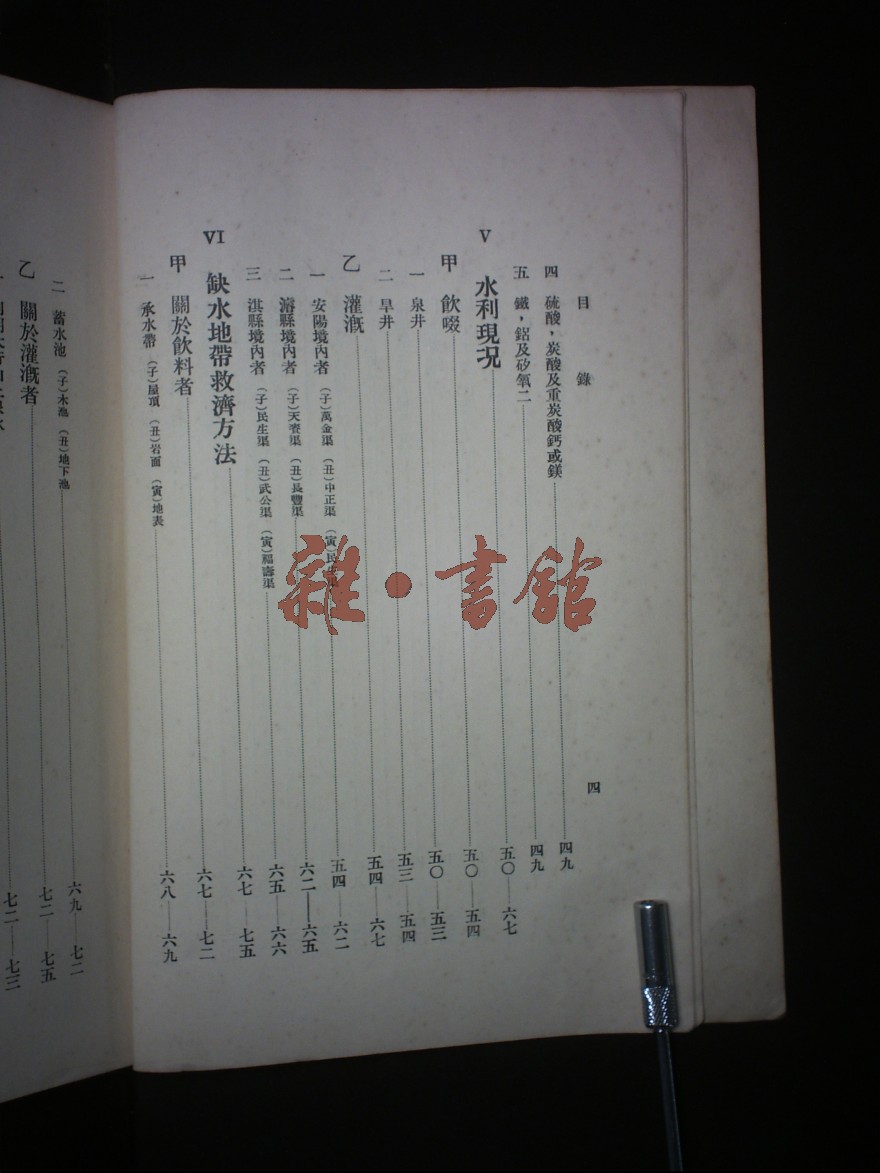 目錄
四
四 硫酸，炭酸及重炭酸鈣或鎂 四九
五 鐵，鋁及矽氧二 四九
V 水利現況 五〇——六七
甲 飲啜 五〇——五四
一 泉井 五〇——五三
二 旱井 五三——五四
乙 灌漑 五四——六七
一 安陽境內者 （子）萬金渠 （丑）中正渠 （寅）民生渠 五四——六二
二 濬縣境內者 （子）天賚渠 （丑）長豐渠 六二——六五
三 淇縣境內者 （子）民生渠 （丑）武公渠 （寅）福壽渠 六五——六六
VI 缺水地帶救濟方法 六七——七五
甲 關於飲料者 六七——七二
一 承水帶 （子）屋頂 （丑）岩面 （寅）地表 六八——六九
二 蓄水池 （子）水池 （丑）地下池 六九——七二
乙 關於灌漑者 七二——七五
七二——七三
雜·書館